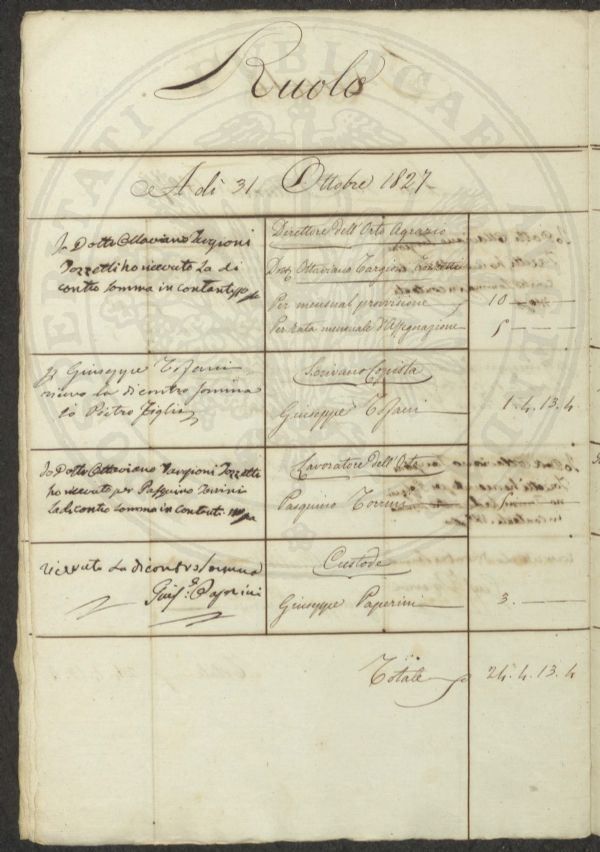 Ruolo
A dì 31 Ottobre 1827
Io Dottr Ottaviano Targioni
Tozzetti ho ricevuto La di
contro somma in contanti
Direttore dell'Orto Agrario
Dottr Ottaviano Targioni Tozzetti
Per mensual provisione 10
Per rata mensuale d'Assegnazione 5
Giuseppe Tofani
ricevo la dicontro somma
Io Pietro Figlio
Scrivano Copista
Giuseppe Tofani 1. 4. 13. 4
Io Dottr Ottaviano Targioni Tozzetti
ho ricevuto per Pasquino Torrini
La di contro somma in contanti
Lavoratore dell'Orto
Pasquino Torrini 5
ricevuto La dicontro somma
Giuse. Paperini
Custode
Giuseppe Paperini 3.
Totale 24. 4. 13. 4